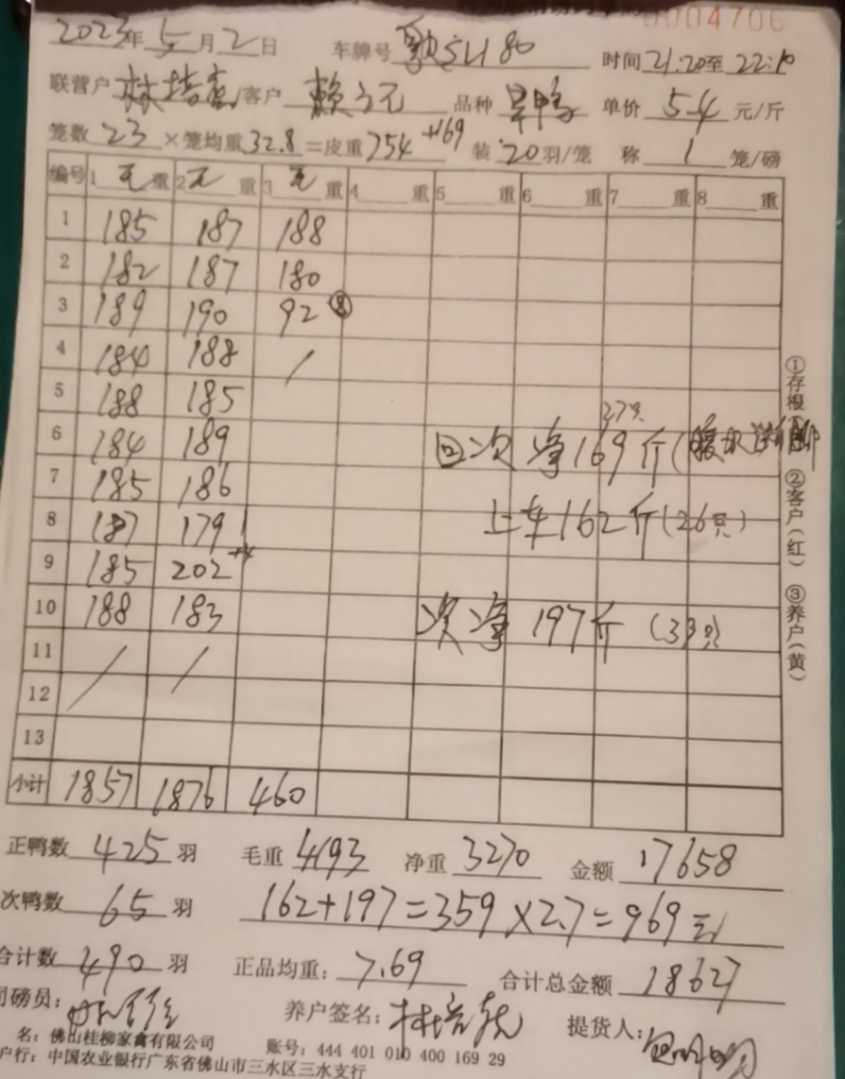 0004706
2023年5月2日 车牌号 粤 SU180 时间 21:20至 22:10
联营户 林培 客户 赖 元 品种 旱鸭 单价 5.4 元/斤
笼数 23 ×笼均重 32.8 =皮重 754 +169 装 20 羽/笼 称 1 笼/磅
编号 1 毛 重 2 毛 重 3 毛 重 4 重 5 重 6 重 7 重 8 重
1 185 187 188
2 182 187 180
3 189 190 92 ⑧
4 184 188 /
5 188 185
27只
6 184 189 回次 净169斤(
7 185 186
8 187 179 上车162斤(26只)
9 185 202 +4
10 188 183 次净 197斤 (39只)
11 / /
12
13
小计 1857 1876 460
正鸭数 425 羽 毛重 4193 净重 3270 金额 17658
次鸭数 65 羽 162+197=359×2.7=969元
合计数 490 羽 正品均重: 7.69 合计总金额 18627
司磅员: 养户签名: 林培 提货人:
名: 佛山桂柳家禽有限公司 账号: 444 401 010 400 169 29
户行: 中国农业银行广东省佛山市三水区三水支行
①存根 ②客户(红) ③养户(黄)